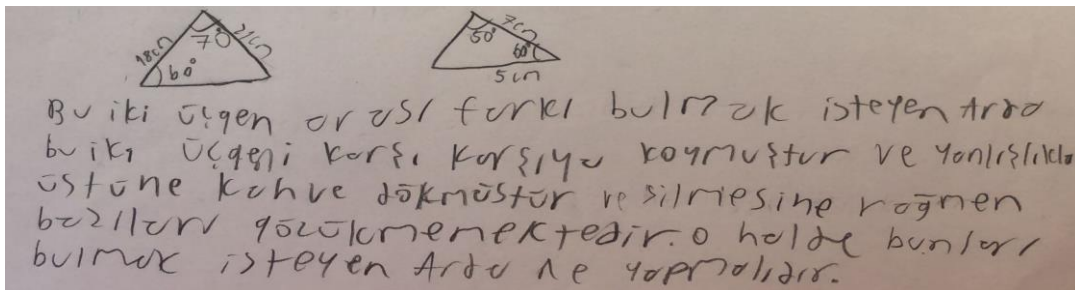 18cn 70° 21cn 60°
50° 7cn 60° 5cn
Bu iki üçgen arası farkı bulmak isteyen Arda
bu iki üçgeni karşı karşıya koymuştur ve yanlışlıkla
üstüne kahve dökmüştür ve silmesine rağmen
bazıları gözükmemektedir. O halde bunları
bulmak isteyen Arda ne yapmalıdır.